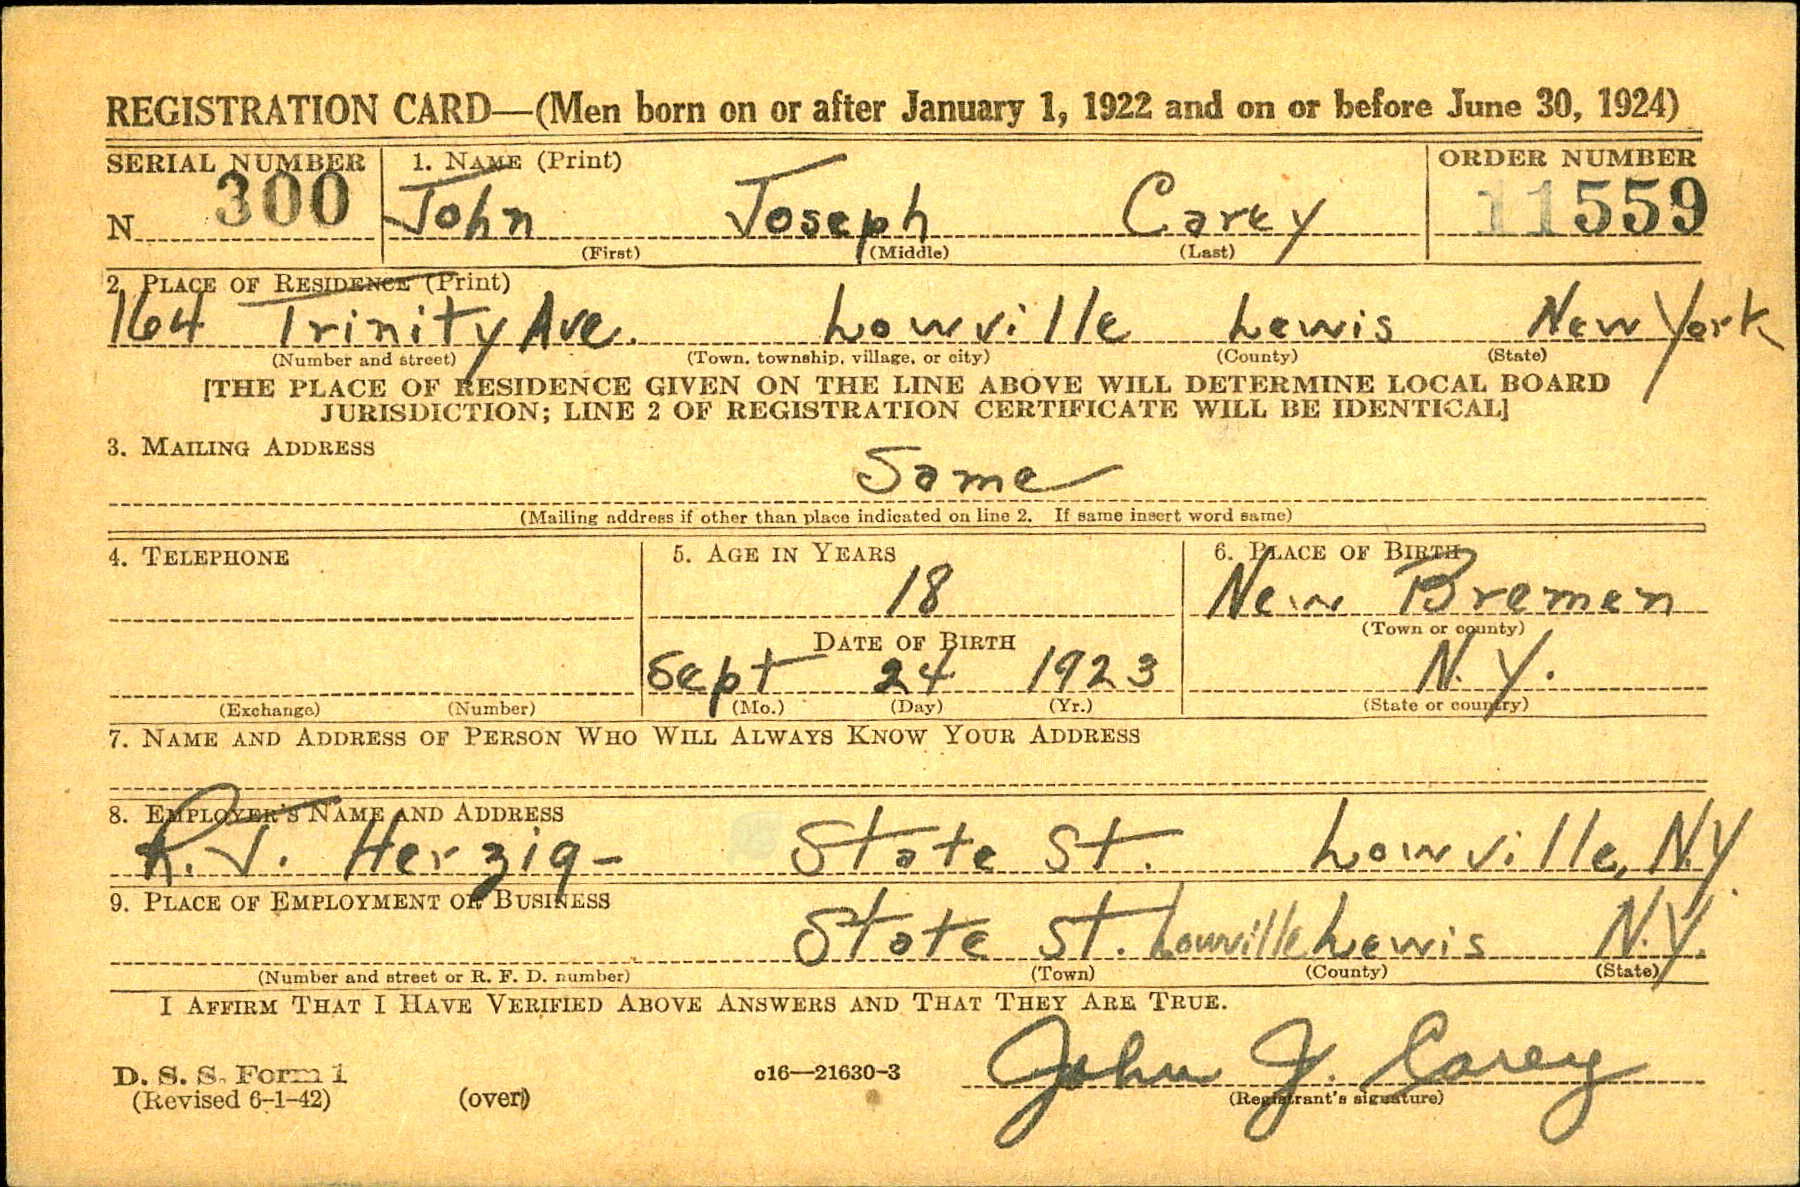 REGISTRATION CARD—(Men born on or after January 1, 1922 and on or before June 30, 1924)
SERIAL NUMBER 1. NAME (Print) ORDER NUMBER
N 300 John Joseph Carey 11559
(First) (Middle) (Last)
2. PLACE OF RESIDENCE (Print)
164 Trinity Ave. Lowville Lewis New York
(Number and street) (Town, township, village, or city) (County) (State)
[THE PLACE OF RESIDENCE GIVEN ON THE LINE ABOVE WILL DETERMINE LOCAL BOARD
JURISDICTION; LINE 2 OF REGISTRATION CERTIFICATE WILL BE IDENTICAL]
3. MAILING ADDRESS
Same
(Mailing address if other than place indicated on line 2. If same insert word same)
4. TELEPHONE 5. AGE IN YEARS 6. PLACE OF BIRTH
18 New Bremen
(Town or county)
DATE OF BIRTH
Sept 24 1923 N.Y.
(Exchange) (Number) (Mo.) (Day) (Yr.) (State or country)
7. NAME AND ADDRESS OF PERSON WHO WILL ALWAYS KNOW YOUR ADDRESS
8. EMPLOYER'S NAME AND ADDRESS
R.J. Herzig- State St. Lowville, N.Y.
9. PLACE OF EMPLOYMENT OR BUSINESS
State St. Lowville Lewis N.Y.
(Number and street or R. F. D. number) (Town) (County) (State)
I AFFIRM THAT I HAVE VERIFIED ABOVE ANSWERS AND THAT THEY ARE TRUE.
John J. Carey
D. S. S. Form 1 c16—21630-3
(Revised 6-1-42) (over) (Registrant's signature)